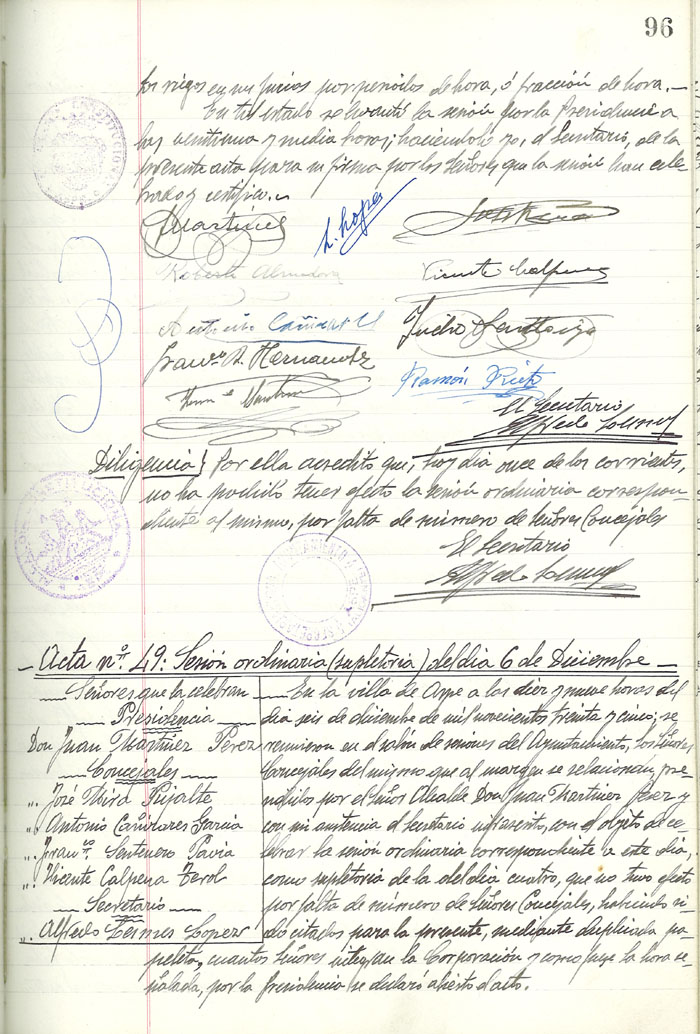 96
los riegos en sus juicios por periodos de hora, ó fracción de hora.—
En tal estado se levantó la sesión por la Presidencia a
las veintiuna y media horas; haciéndolo yo, el Secretario, de la
presente acta para su firma por los Señores que la sesión han cele-
brado y certifico.—
JMartinez
L. Lopez
Roberto Almodova
Vicente Calpena
Antonio Cañizares
Franco. A. Hernandez
Ramón Prieto
El Secretario
Alfredo
Diligencia} Por ella acredito que, hoy dia once de los corrientes,
no ha podido tener efecto la sesión ordinaria correspon-
diente al mismo, por falta de número de Señores Concejales
El Secretario
Alfredo
Acta nº. 49: Sesión ordinaria (supletoria) del dia 6 de Diciembre
Señores que la celebran
Presidencia
Don Juan Martinez Perez
Concejales
". José Miró Pujalte
". Antonio Cañizares Garcia
". Franco. Sentenero Pavia
". Vicente Calpena Terol
Secretario
". Alfredo Termes Lopez
En la villa de Aspe a las diez y nueve horas del
dia seis de diciembre de mil novecientos treinta y cinco; se
reunieron en el salón de sesiones del Ayuntamiento, los Señores
Concejales del mismo que al margen se relacionan, pre-
sididos por el Señor Alcalde Don Juan Martinez Perez y
con mi asistencia el Secretario infrascrito, con el objeto de ce-
lebrar la sesión ordinaria correspondiente a este dia,
como supletoria de la del dia cuatro, que no tuvo efecto
por falta de número de Señores Concejales, habiendo si-
do citados para la presente, mediante duplicada pa-
peleta, cuantos Señores integran la Corporación y como fuese la hora se-
ñalada, por la Presidencia se declaró abierto el acto.